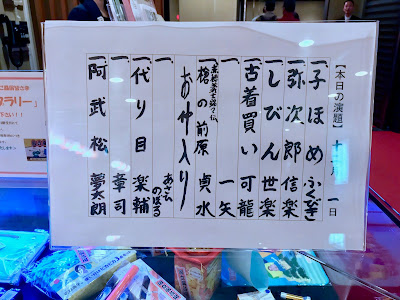 【本日の演題】 一日
一 子ほめ ふくびき
一 弥次郎 信楽
一 しびん 世楽
一 古着買い 可龍
一 一矢
赤穂義士銘々伝
一 槍の前原 貞水
お仲入り
一 あさひのぼる
一 代り目 楽輔
一 章司
一 阿武松 夢太朗
ラリー」